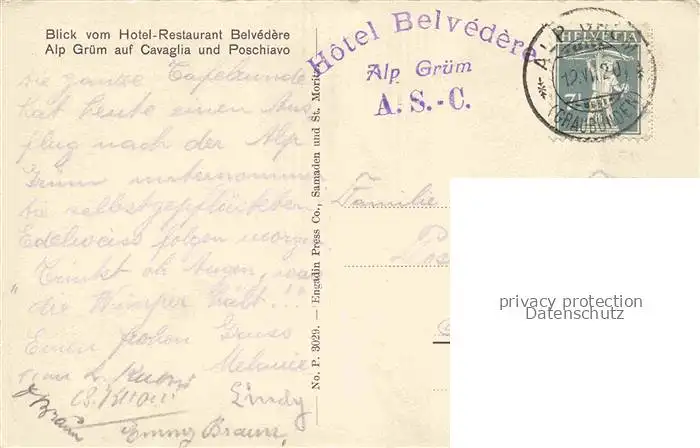 Blick vom Hotel-Restaurant Belvédère
Alp Grüm auf Cavaglia und Poschiavo
Hôtel Belvédère
Alp Grüm
A. S.-C.
HELVETIA
7½
(GRAUBÜNDEN)
die ganze Tafelrunde
hat heute einen Aus-
flug nach der Alp
Grüm unternommen
die selbstgepflückten
Edelweiss folgen morgen
Trinkt oh Augen, was
die Wimper hält!!!
Einen frohen Gruss
Melanie
Lindy
J Braun
Emmy Braun,
No. P. 3029. — Engadin Press Co., Samaden und St. Moritz
Familie
privacy protection
Datenschutz